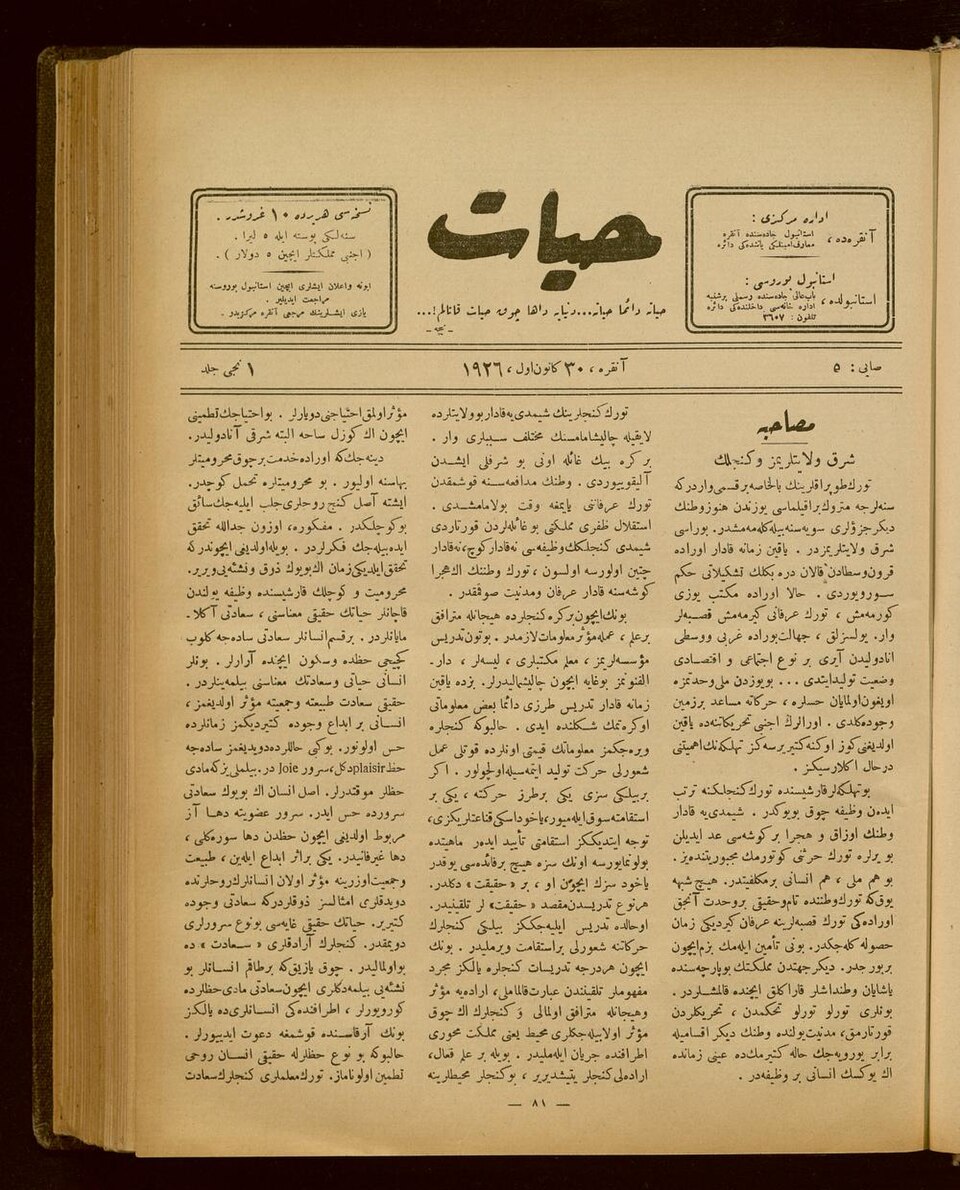 اداره مركزی :
آنقره‌ده ، استانبول جاده‌سنده آنقره
معارف امینلكی یاننده‌كی دائره
استانبول بوروسی :
استانبولده ، باب‌عالی جاده‌سنده رسملی پرشنبه
اداره خانه‌سی داخلنده‌كی دائره
تلفون : ٣٦٠٧
حیات
حیاته دائما حیاته...دنیایه داها چوق حیات قاتالم !...
ـ نیچه ـ
نسخه‌سی هر یرده ١٠ غروشدر .
سنه‌لكی پوسته ایله ٥ لیرا .
( اجنبی مملكتلر ایچین ٥ دولار ) .
ابونه واعلان ایشلری ایچین استانبول بوروسنه
مراجعت ایدیلیر .
یازی ایشلرینك مرجعی آنقره مركزیدر .
صایی : ٥
آنقره ، ٣٠ كانون اول ، ١٩٢٦
١ نجی جلد
مصاحبه
شرق ولایتلریمز وكنجلك
تورك طوپراقلرینك بالخاصه برقسمی واردركه
سنه‌لرجه متروك براقیلماسی یوزندن هنوز وطنك
دیكر جزؤلری سویه‌سنه بیله كله‌مه‌مشدر. بوراسی
شرق ولایتلریمزدر . یاقین زمانه قادار اوراده
قرون وسطادن قالان دره بكلك تشكیلاتی حكم
سورویوردی . حالا اوراده مكتب یوزی
كورمه‌مش ، تورك عرفانی كیرمه‌مش قصبه‌لر
وار. یولسزلق ، جهالت بوراده غربی ووسطی
انادولیدن آیری بر نوع اجتماعی و اقتصادی
وضعیت تولیدایتدی ... بویوزدن ملی وحدتمزه
اویغون اولمایان حسلره ، حركاته مساعد برزمین
وجوده كلدی . اورالرك اجنبی تحریكاتنه‌ده یاقین
اولدیغنی كوز اوكنه كتیریرسه‌كز تهلكه‌نك اهمیتنی
درحال اكلارسیكز .
بوتهلكه‌لر قارشیسنده تورك كنجلكنه ترتب
ایدن وظیفه چوق بویوكدر . شیمدی‌یه قادار
وطنك اوزاق و هجرا بر كوشه‌سی عد ایدیلن
بو یرلره تورك حرثنی كوتورمك مجبوریتنده‌یز .
بو هم ملی ، هم انسانی برمكلفیتدر. هیچ شبهه
یوق‌كه تورك وطننده تام وحقیقی بروحدت آنجق
اوراده‌كی تورك قصبه‌لرینه عرفان كیردیكی زمان
حصوله كله‌جكدر. بونی تأمین ایله‌مك بزم ایچون
بربورجدر. دیكر جهتدن مملكتك بوپارچه‌سنده
یاشایان وطنداشلر قاراكلق ایچنده قالمشلردر .
بونلری تورلو تورلو تحكمدن ، تحریكلردن
قورتارمق، مدنیت یولنده وطنك دیكر اقسامیله
برابر یورویه‌جك حاله كتیرمك‌ده عینی زمانده
اك یوكسك انسانی بر وظیفه‌در .
تورك كنجلرینك شیمدی‌یه قادار بو ولایتلرده
لایقیله چالیشامامسنك مختلف سببلری وار .
بر كره بیك غائله اونی بو شرفلی ایشدن
آلیقویویوردی . وطنك مدافعه‌سنه قوشمقدن
تورك عرفاننی یایمغه وقت بولامامشدی .
استقلال ظفری مملكتی بو غائله‌لردن قورتاردی
شیمدی كنجلكك وظیفه‌سی نه‌قادار كوچ، نه‌قادار
چتین اولورسه اولسون ، تورك وطننك اك هجرا
كوشه‌سنه قادار عرفان ومدنیت صوقمقدر .
بونك ایچون بركره كنجلرده هیجانله مترافق
برعلم ، عمله مؤثر معلومات لازمدر . بوتون تدریس
مؤسسه‌لریمز ، معلم مكتبلری ، لیسه‌لر ، دارـ
الفنونمز بوغایه ایچون چالیشمالیدرلر. بزده یاقین
زمانه قادار تدریس طرزی دائما بعض معلوماتی
اوكره‌تمك شكلنده ایدی . حالبوكه كنجلره
ویره‌جكمز معلوماتك قیمتی اونلرده قوتلی عمل
شعورلی حركت تولید ایتمه‌سیله اولچولور . اكر
بربیلكی سزی یكی برطرز حركته ، یكی بر
استقامته سوق ایله‌میور، یاخود اسكی قناعتلریكزی،
توجه ایتدیككز استقامتی تأیید ایده‌ر ماهیتده
بولونمایورسه اونك سزه هیچ برفائده‌سی یوقدر
یاخود سزك ایچون او ، بر « حقیقت » دكلدر.
هرنوع تدریسدن مقصد « حقیقت » لر تلقینیدر.
اوحالده تدریس ایلیه‌جككز بیلكی كنجلرك
حركاتنه شعورلی براستقامت ویرملیدر . بونك
ایچون هردرجه تدریسات كنجلره یالكز مجرد
مفهوملر تلقیندن عبارت قالماملی، اراده‌یه مؤثر
وهیجانله مترافق اولمالی و كنجلرك اك چوق
مؤثر اولابیله‌جكلری محیط یعنی مملكت محوری
اطرافنده جریان ایله‌ملیدر . بویله بر علم فعال،
اراده‌لی كنجلر یتیشدیریر ، بو كنجلر محیطلرینه
مؤثر اولمق احتیاجنی دویارلر . بو احتیاجك تطمینی
ایچون اك كوزل ساحه البته شرقی آنادولیدر.
دینه‌جك‌كه اوراده خدمت برچوق محرومیتلر
بهاسنه اولیور . بو محرومیتلره تحمل كوچدر.
ایشته آصل كنج روحلری جلب ایلیه‌جك سائق
بو كوچلكدر . مفكوره، اوزون جدالله تحقق
ایده‌بیله‌جك فكرلردر . بویله اولدیغی ایچوندر كه
تحقق ایلدیكی زمان اك بویوك ذوق ونشئه‌یی ویریر.
محرومیت و كوچلك قارشیسنده وظیفه یولندن
قاچانلر حیاتك حقیقی معناسنی ، سعادتی آكلا ـ
مایانلردر . برقسم انسانلر سعادتی ساده‌جه كلوب
كچیجی حظده وسكون ایچنده آرارلر . بونلر
انسانی حیاتی وسعادتك معناسنی بیلمه‌ینلردر .
حقیقی سعادت طبیعته وجمعیته مؤثر اولدیغمز ،
انسانی بر ابداع وجوده كتیردیكمز زمانلرده
حس اولونور. بوكبی حاللرده دویدیغمز ساده‌جه
حظ plaisir دكل، سرور Joie در. بیلملی یز كه مادی
حظلر موقتدرلر . اصل انسان اك بویوك سعادتی
سرورده حس ایدر. سرور عضویته دها آز
مربوط اولدیغی ایچون حظدن دها سوره‌كلی ،
دها غیرفانیدر. یكی براثر ابداع ایله‌ین ، طبیعت
وجمعیت اوزرینه مؤثر اولان انسانلرك روحلرنده
دویدقلری امثالسز ذوقلردركه سعادتی وجوده
كتیریر. حیاتك حقیقی غایه‌سی بونوع سرورلری
دویمقدر. كنجلرك آرادقلری « سعادت » ده
بو اولمالیدر. چوق یازیق‌كه برطاقم انسانلر بو
نشئه‌یی بیلمه‌دكلری ایچون سعادتی مادی حظلرده
كورویورلر ، اطرافنده‌كی انسانلری‌ده یالكز
بونك آرقاسنده قوشمغه دعوت ایدییورلر .
حالبوكه بو نوع حظلرله حقیقی انسان روحی
تطمین اولوناماز. تورك معلملری كنجلرك سعادت
— ٨١ —